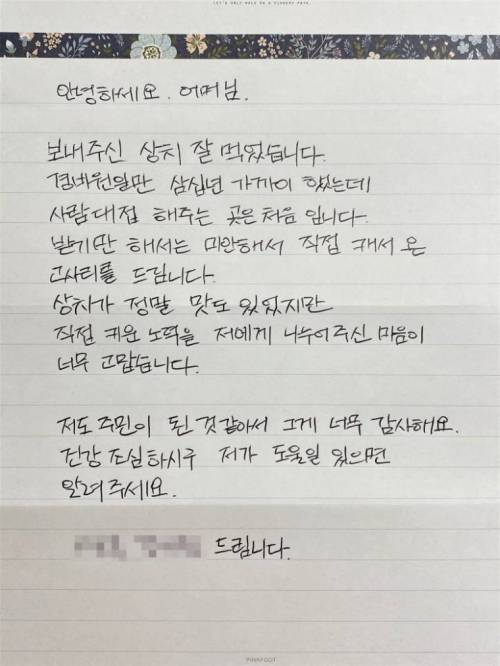 LET'S ONLY WALK ON A FLOWERY PATH.
안녕하세요. 어머님.
보내주신 상치 잘 먹었습니다.
경비원일만 삼십년 가까이 했는데
사람대접 해주는 곳은 처음 입니다.
받기만 해서는 미안해서 직접 캐서 온
고사리를 드립니다.
상차가 정말 맛도 있었지만
직접 키운 노력을 저에게 나누어주신 마음이
너무 고맙습니다.
저도 주민이 된 것 같아서 그게 너무 감사해요.
건강 조심하시구 저가 도울일 있으면
알려주세요.
드림니다.
PINKFOOT